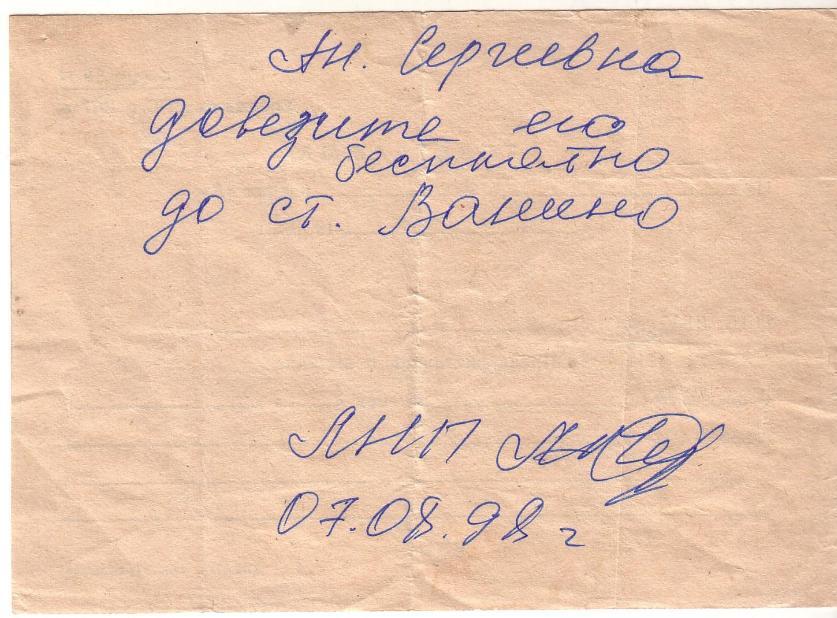 Ан. Сергеевна
довезите его
бесплатно
до ст. Ванино
ЛНП
07.08.98 г